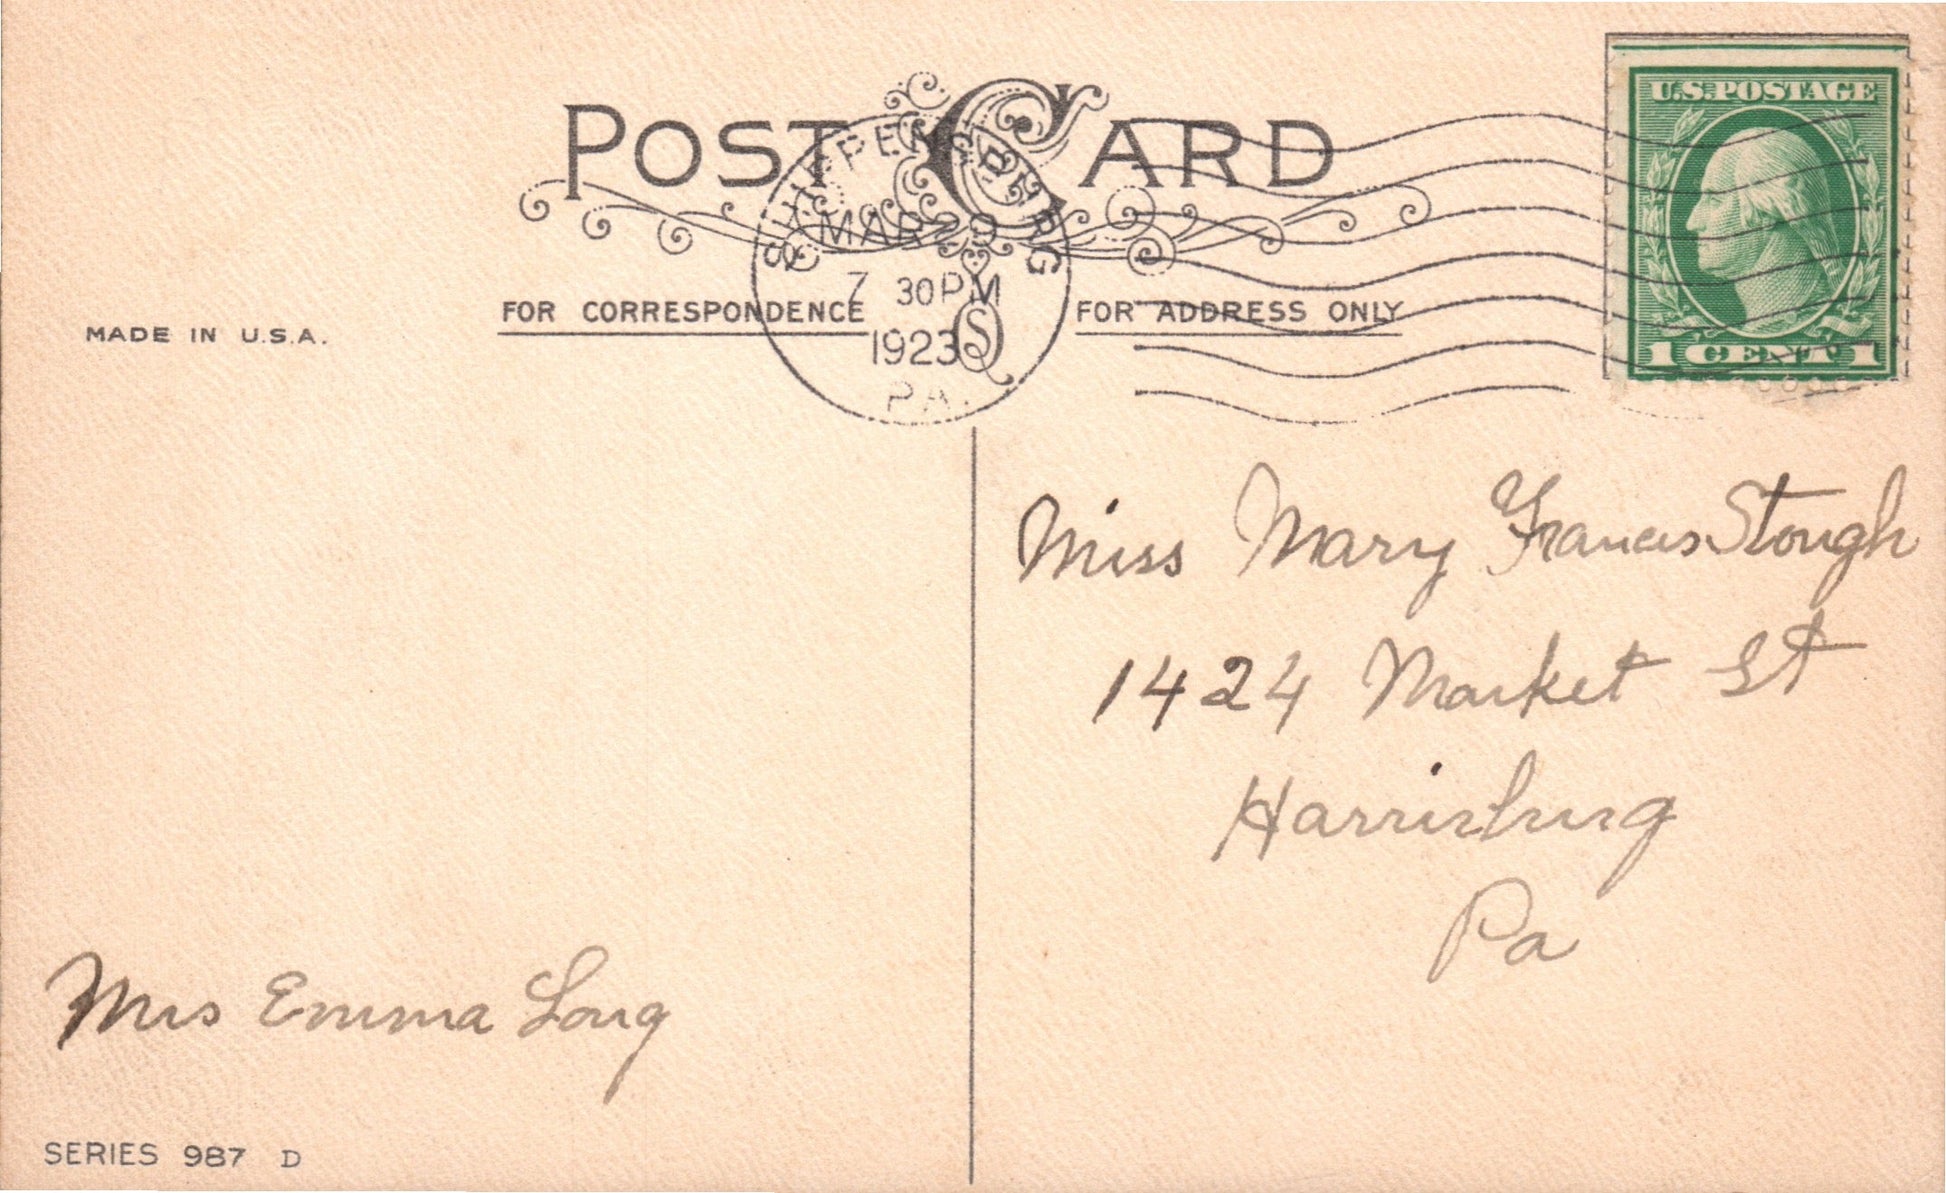 POST CARD
SHIPPENSBURG
MAR 29
7 30 PM
1923
PA.
U.S. POSTAGE
1 CENT 1
FOR CORRESPONDENCE
FOR ADDRESS ONLY
MADE IN U.S.A.
Miss Mary Frances Stough
1424 Market St
Harrisburg
Pa
Mrs Emma Long
SERIES 987 D